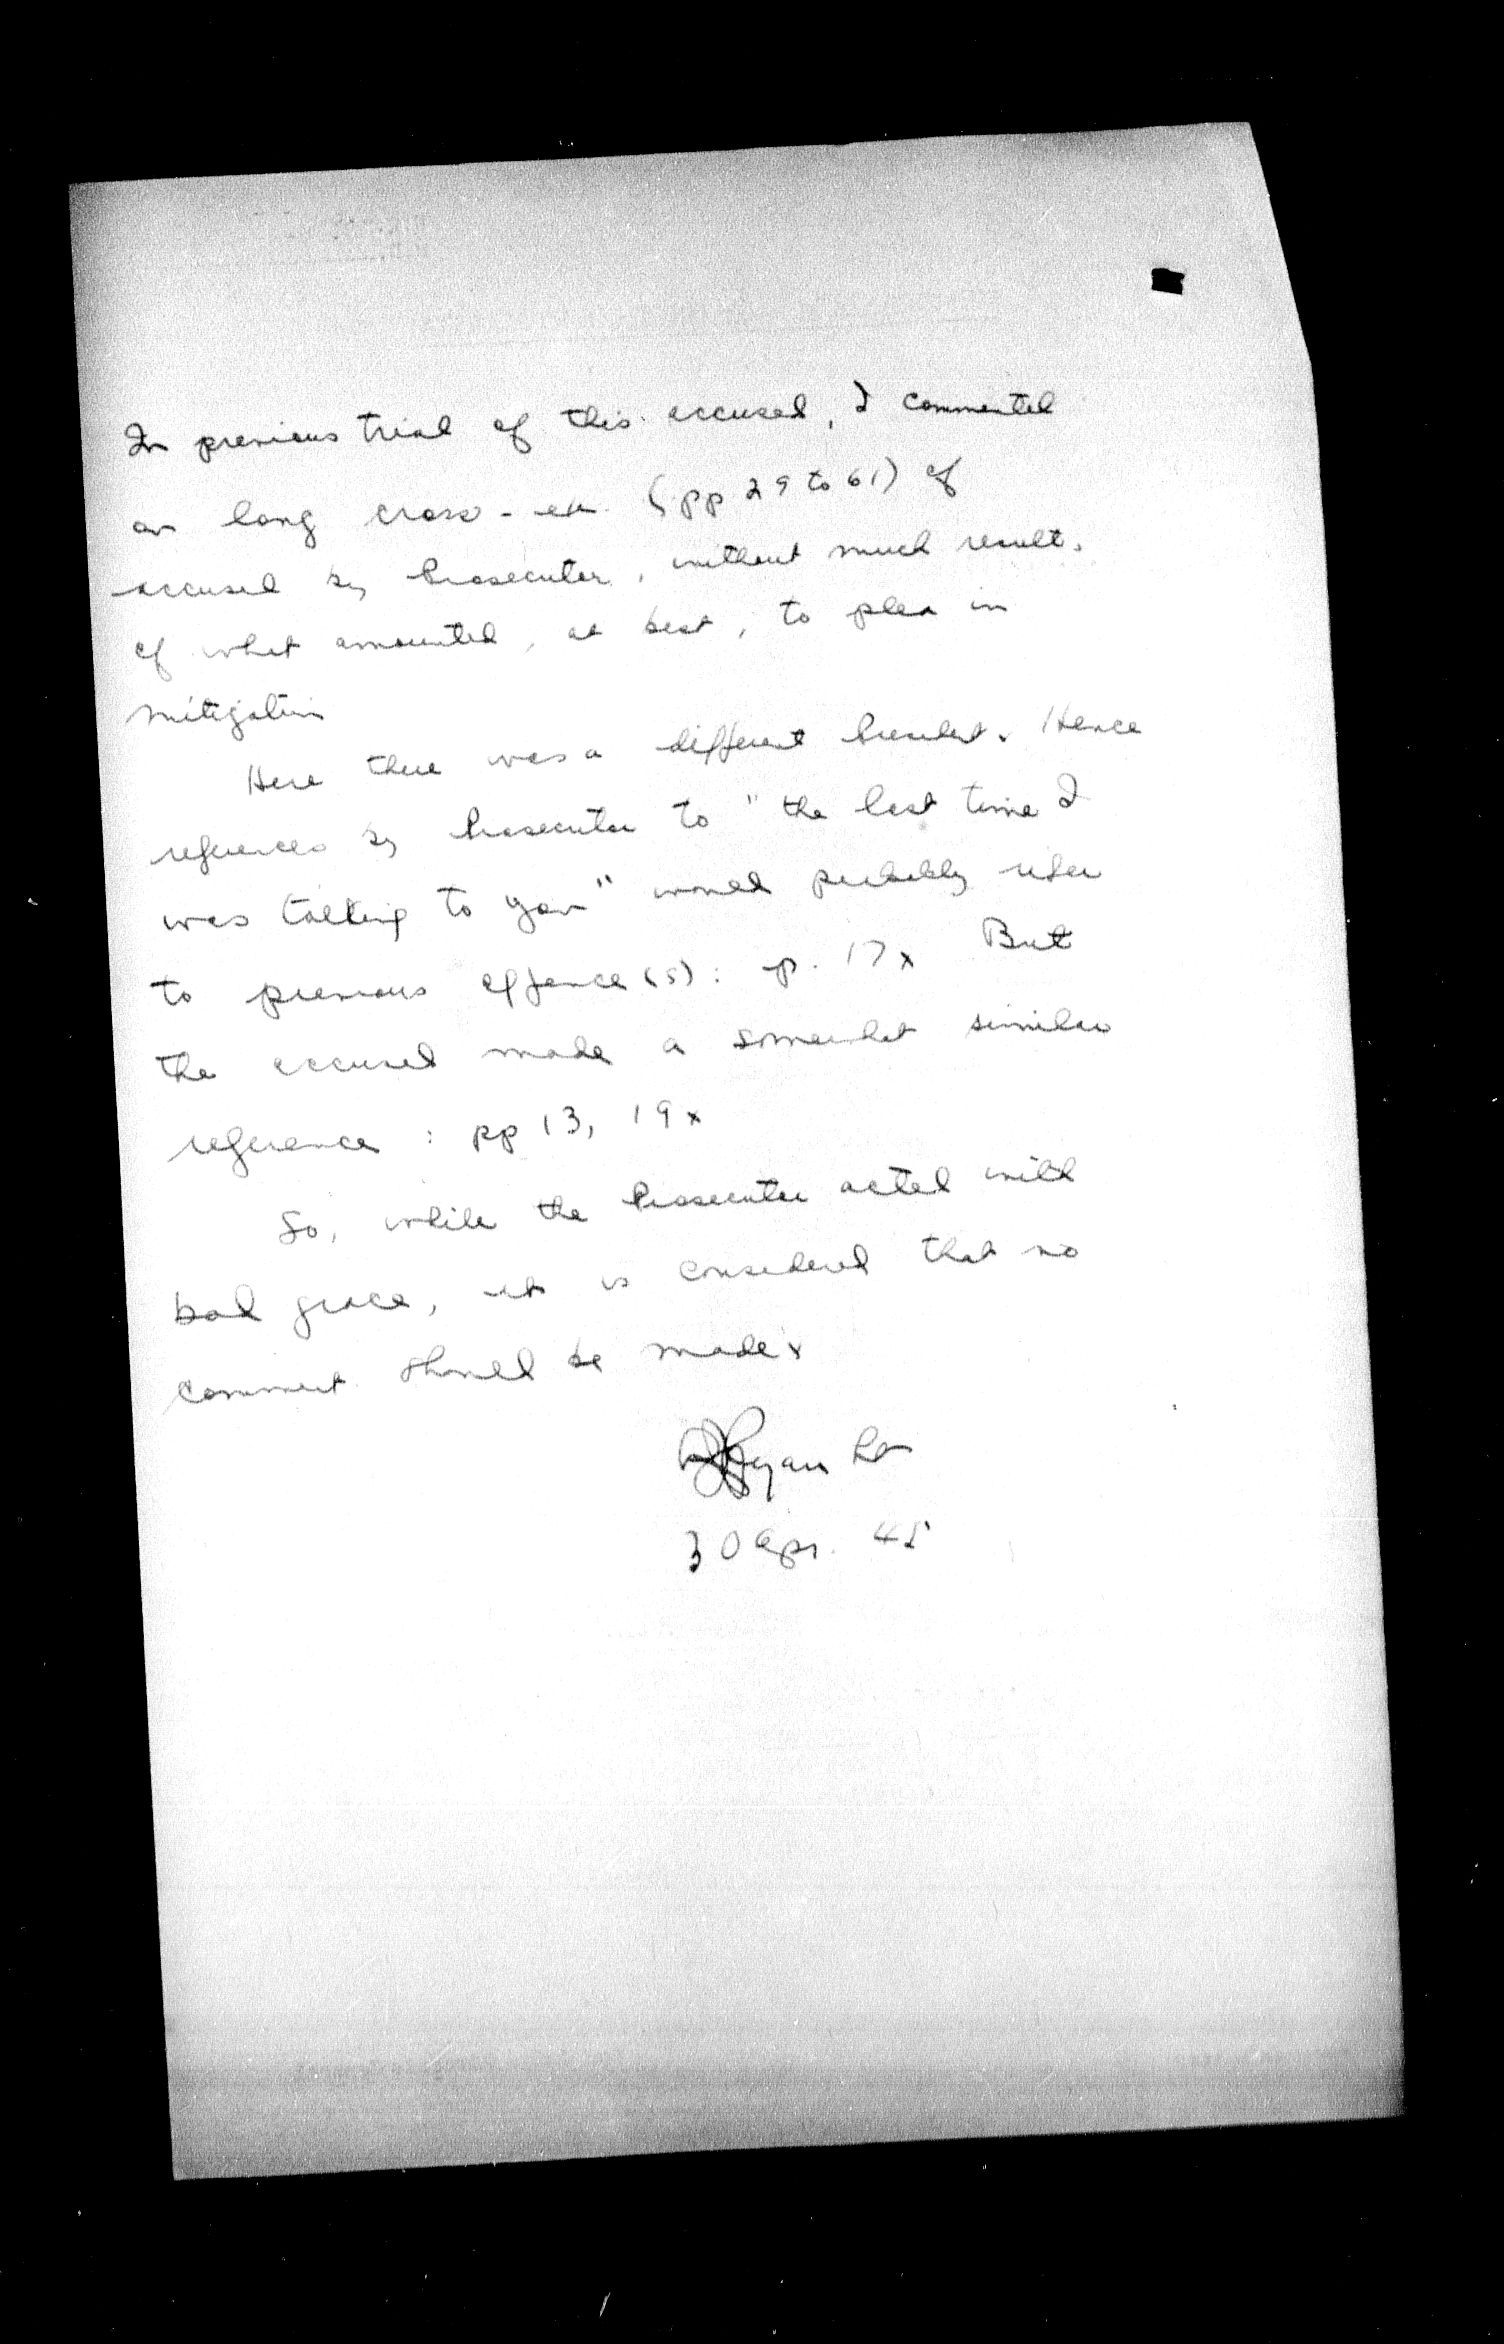 In previous trial of this accused, I commented
on long cross-ex. (pp 29 to 61) of
accused by Prosecutor, without much result,
of what amounted, at best, to plea in
mitigation
Here there was a different President. Hence
references by Prosecutor to "the last time I
was talking to you" would probably refer
to previous offence(s): p. 17x But
the accused made a somewhat similar
reference: pp 13, 19x
So, while the Prosecutor acted with
bad grace, it is considered that no
comment should be madex
Ryan Lt
30 Apr. 45